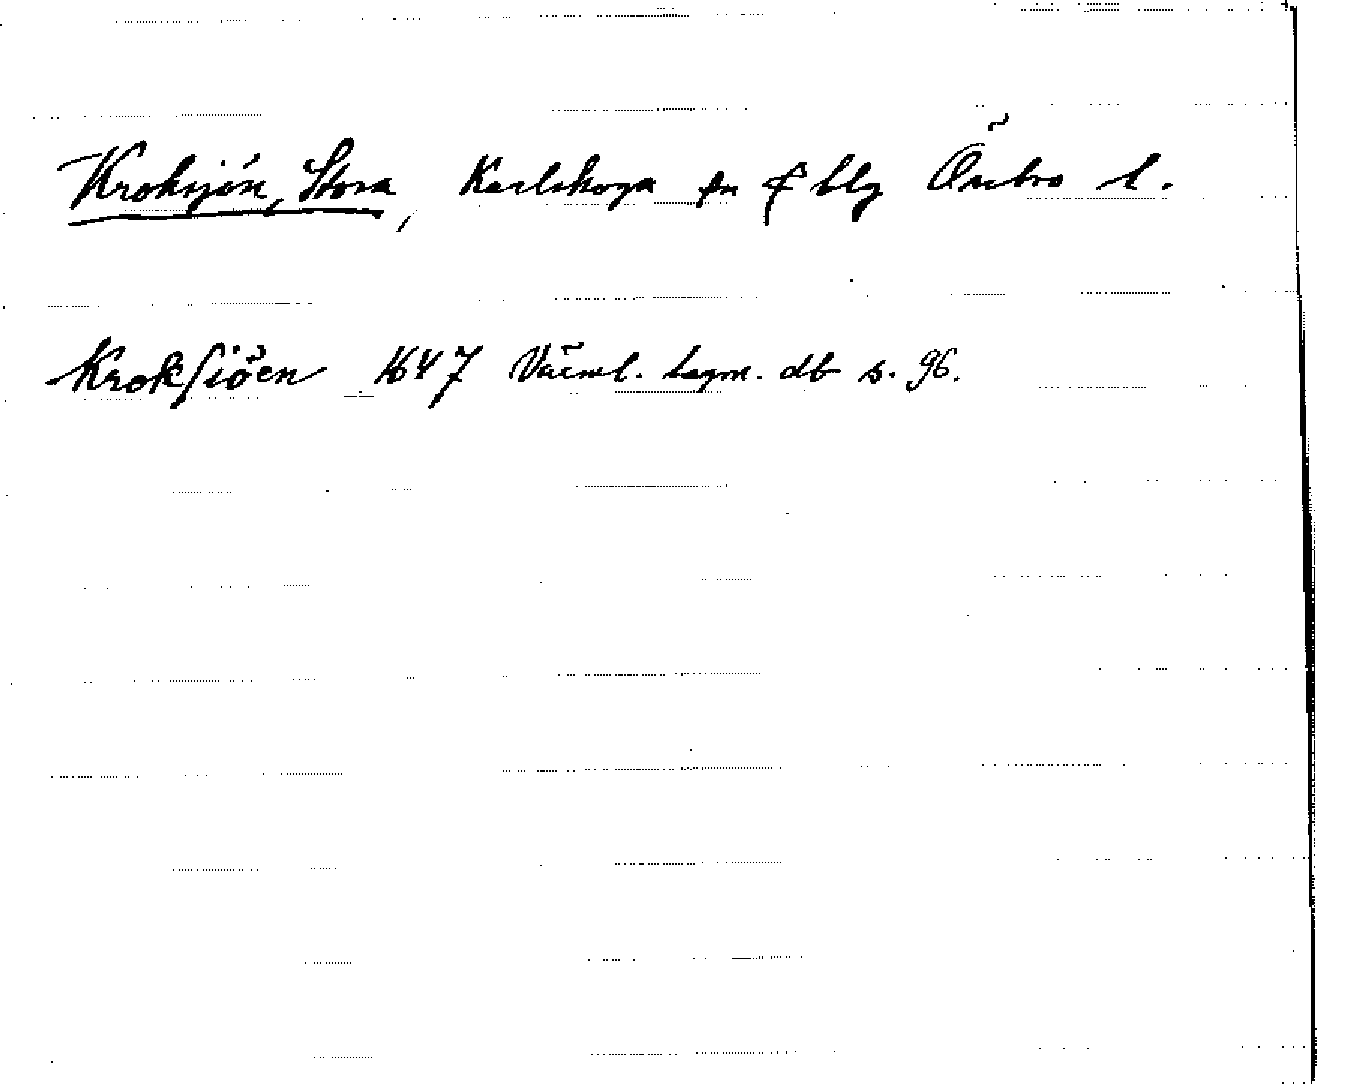 Kroksjön, Stora, Karlskoga sn o blg Örebro l.
Krokſiöen 1647 Värml. Lagm. db s. 96.